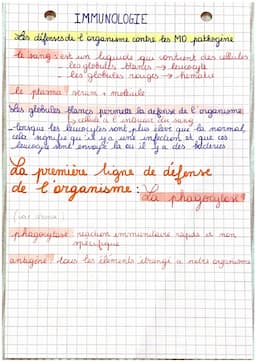 IMMUNOLOGIE
Les défenses de l'organisme contre les MO pathogène
le sang : est un liquide qui contient des cellules
les globules blancs → leucocyte
les globules rouges → hématie
le plasma : sérum + molécule
Les globules blancs permette la défense de l'organisme
cellule à l'intérieur du sang
- lorsque les leucocytes sont plus élevé que la normal,
cela signifie qu'il y a une infection et que ces
leucocyte sont envoyé la ou il y a des bactéries
La première ligne de défense
de l'organisme :
La phagocytose
phagocytose : réaction immunitaire rapide et non
spécifique
antigène : tous les éléments étrangé a notre organisme